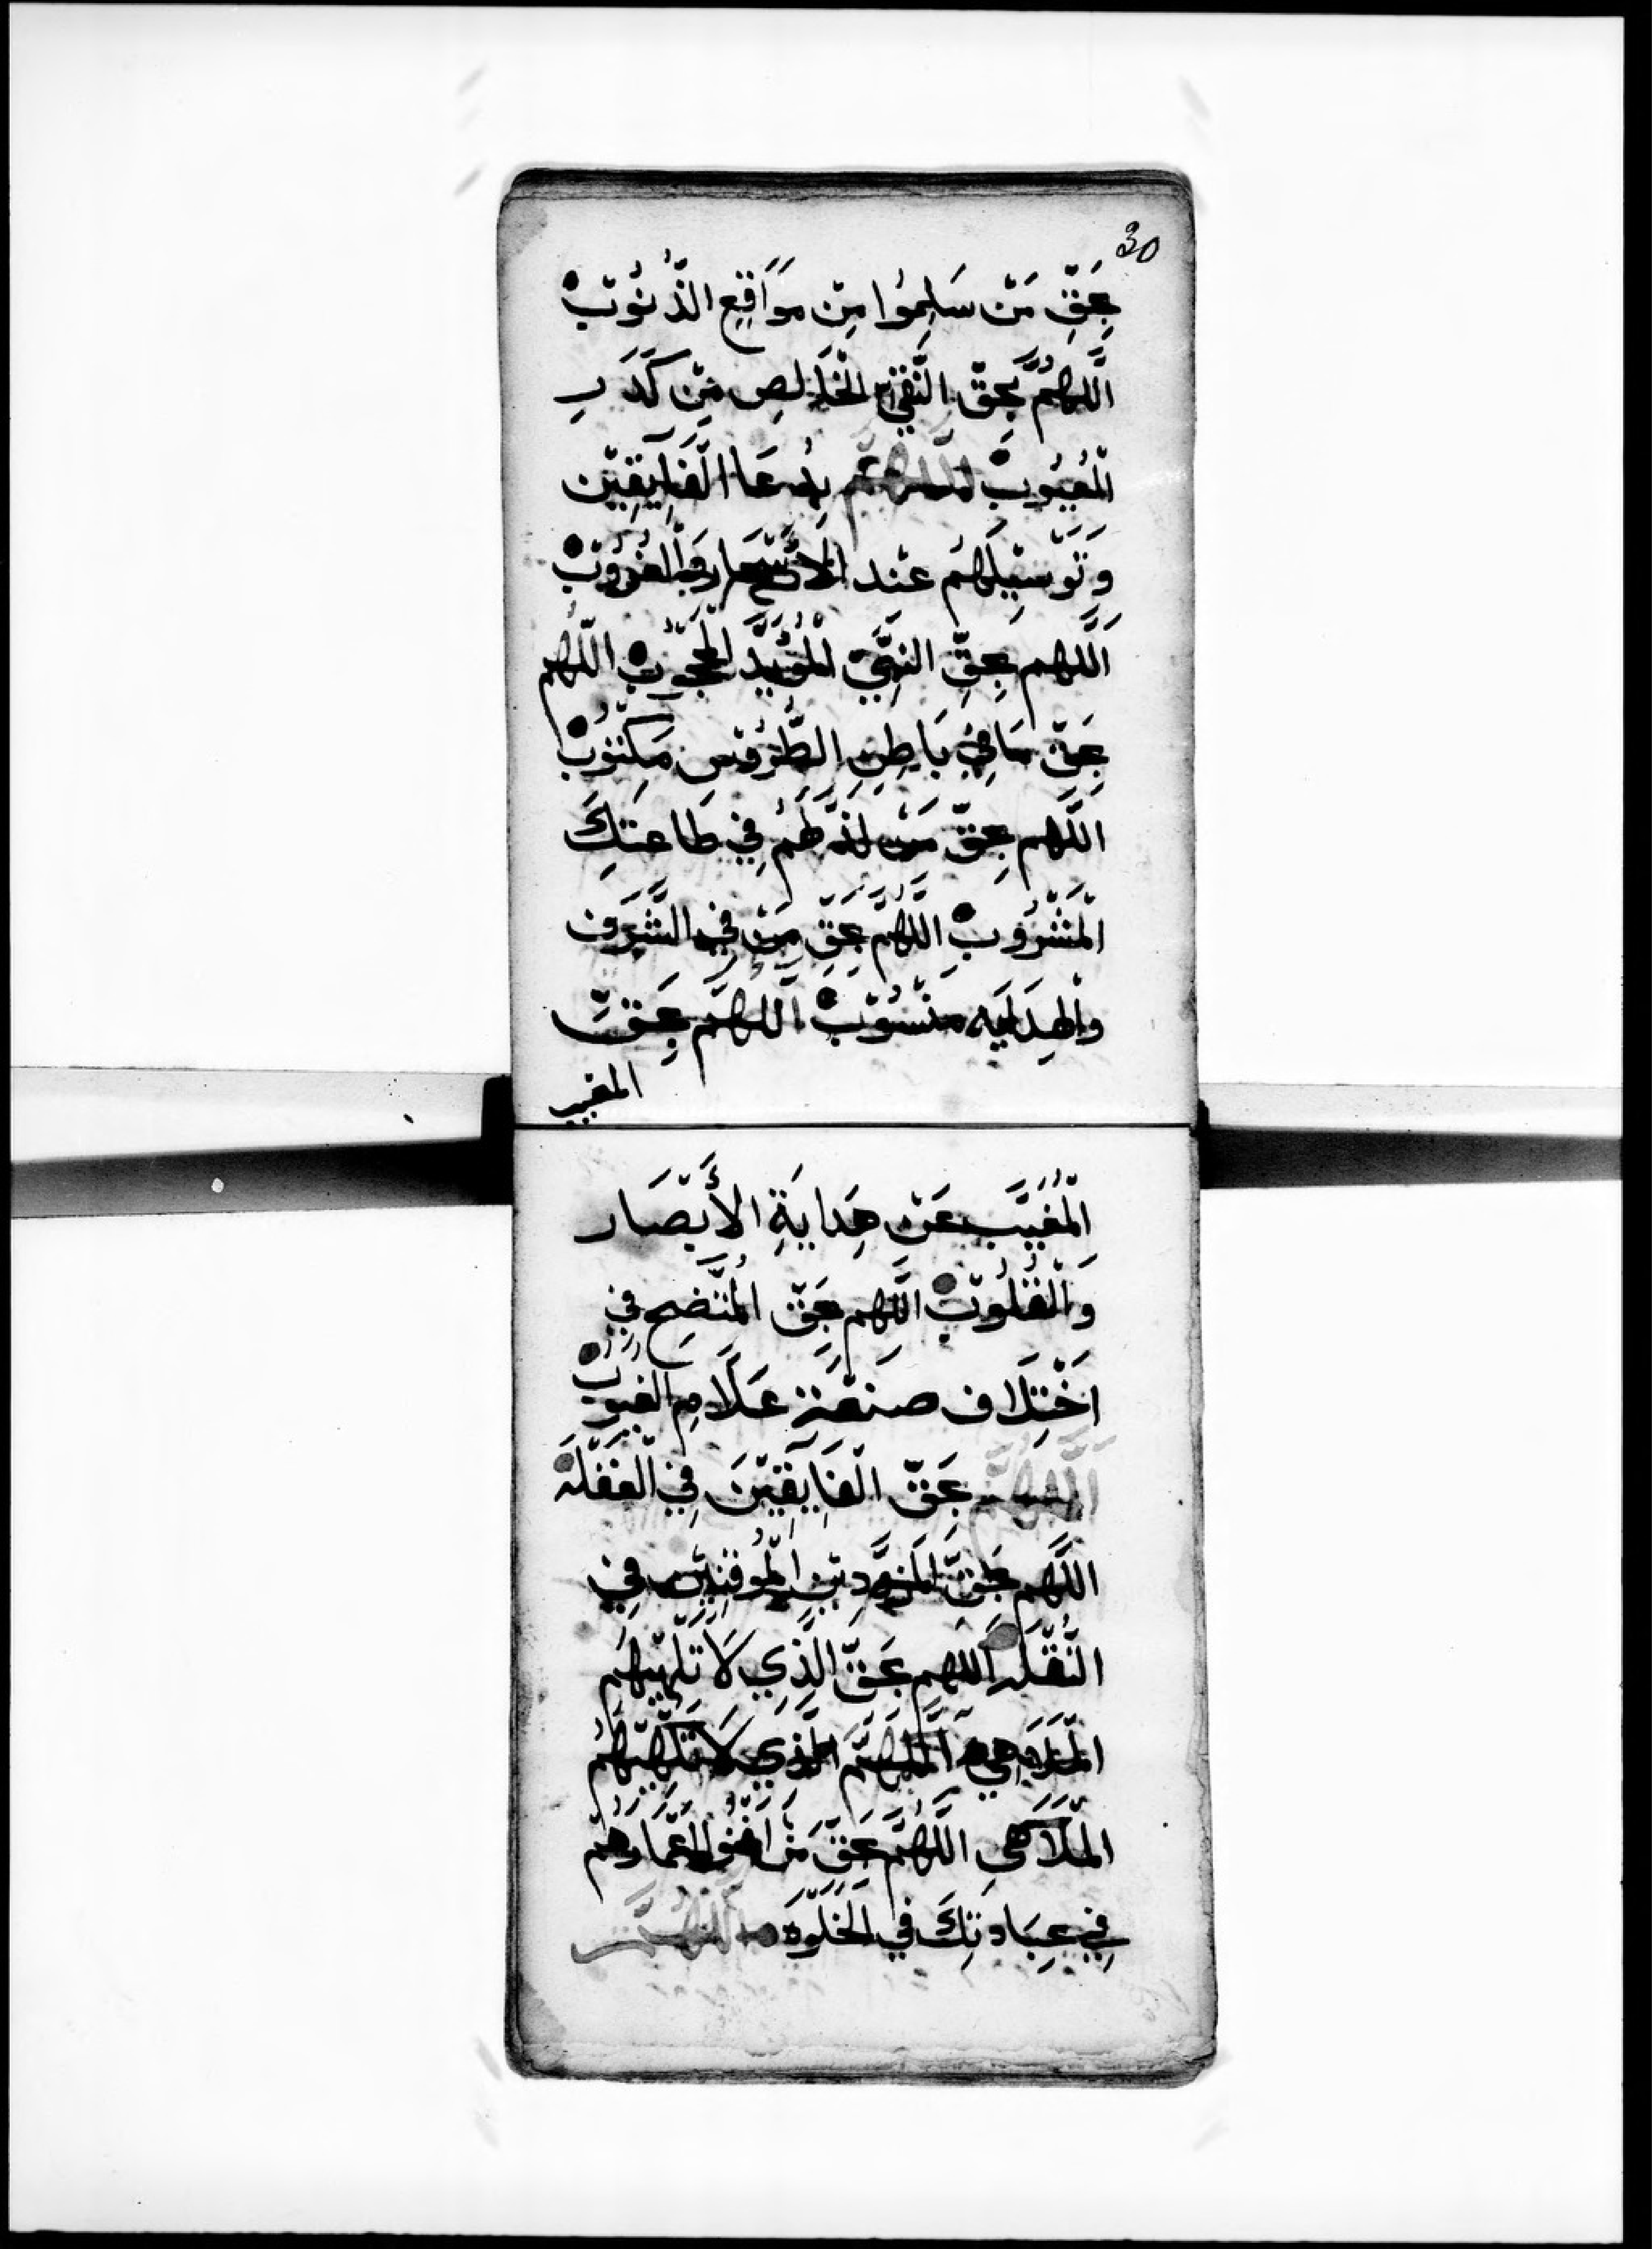 30
بِحَقِّ مَنْ سَلِمُوا مِنْ مَوَاقِعِ الذُّنُوبْ
اللَّهُمَّ بِحَقّ النَّقِيّ الْخَالِصِ مِنْ كَدَرِ
الْعُيُوبْ اللهم بِدُعَا الْفَايِقِيْن
وَتَوَسُّلِهُم عِنْد الْأَسْحَار وَالْغُرُوبْ
اَللَّهم بِحَقِّ النَّبِيّ الْمُؤَيَّد الْمَحْجُوبْ اللّهُم
بِحَقّ مَا فِي بَاطِنِ الطُّرُوسِ مَكْتُوبْ
اللَّهم بِحَقّ مَنْ لَذَّ لَهُمْ فِي طَاعَتِكَ
الْمَشْرُوبْ اللَّهُمَّ بِحَقِّ مَنْ فِي الشَّرَف
وَالْهِدَايَه مَنْسُوبْ اللهمَّ بِحَقِّ
المغيب
الْمُغَيَّبِ عَنْ هِدَايَةِ الْأَبْصَار
وَالْقُلُوبْ اللَّهم بِحَقّ الْمُتَّضِحِ فِي
اخْتِلَاف صنْعَةِ عَلَّامِ الغيوبْ
اللَّهُمَّ بِحَقّ الْفَايِقِيْنَ فِي الْغَفْلَه
اللَّهم بِحَقّ الْمُتَزَوِّدِيْنِ الْمُوقِنِيْن فِي
النُّقْلَه اللهم بِحَقّ الَّذِي لَا تُلْهِيهُم
الْمَلَاهِي اللَّهُمَّ الَّذِي لَا تُلْهِيْهُمُ
الْمَلَاهِي اللَّهُمَّ بِحَقِّ مَنْ افْنُوا اعْمَارَهُمْ
فِي عِبَادَتِكَ فِي الْخَلْوَه اللهُمَّ